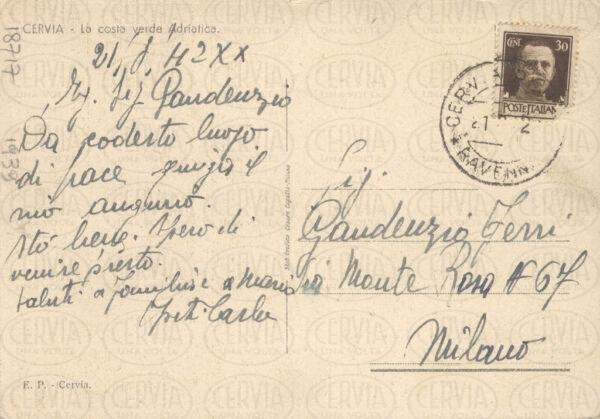 CERVIA - La costa verde Adriatica.
21, 8, 42 XX
Sig Gaudenzio
Da codesto luogo
di pace invio il
mio augurio.
Sto bene. Spero di
venire presto.
Saluti a famiglia e a Maria
Carlo
E. P. - Cervia.
18717 1939
CENT 30
POSTE ITALIANE
CERVIA
RAVENNA
Sig.
Gaudenzio Ferri
Monte Rosa N 67
Milano
CERVIA
UNA VOLTA